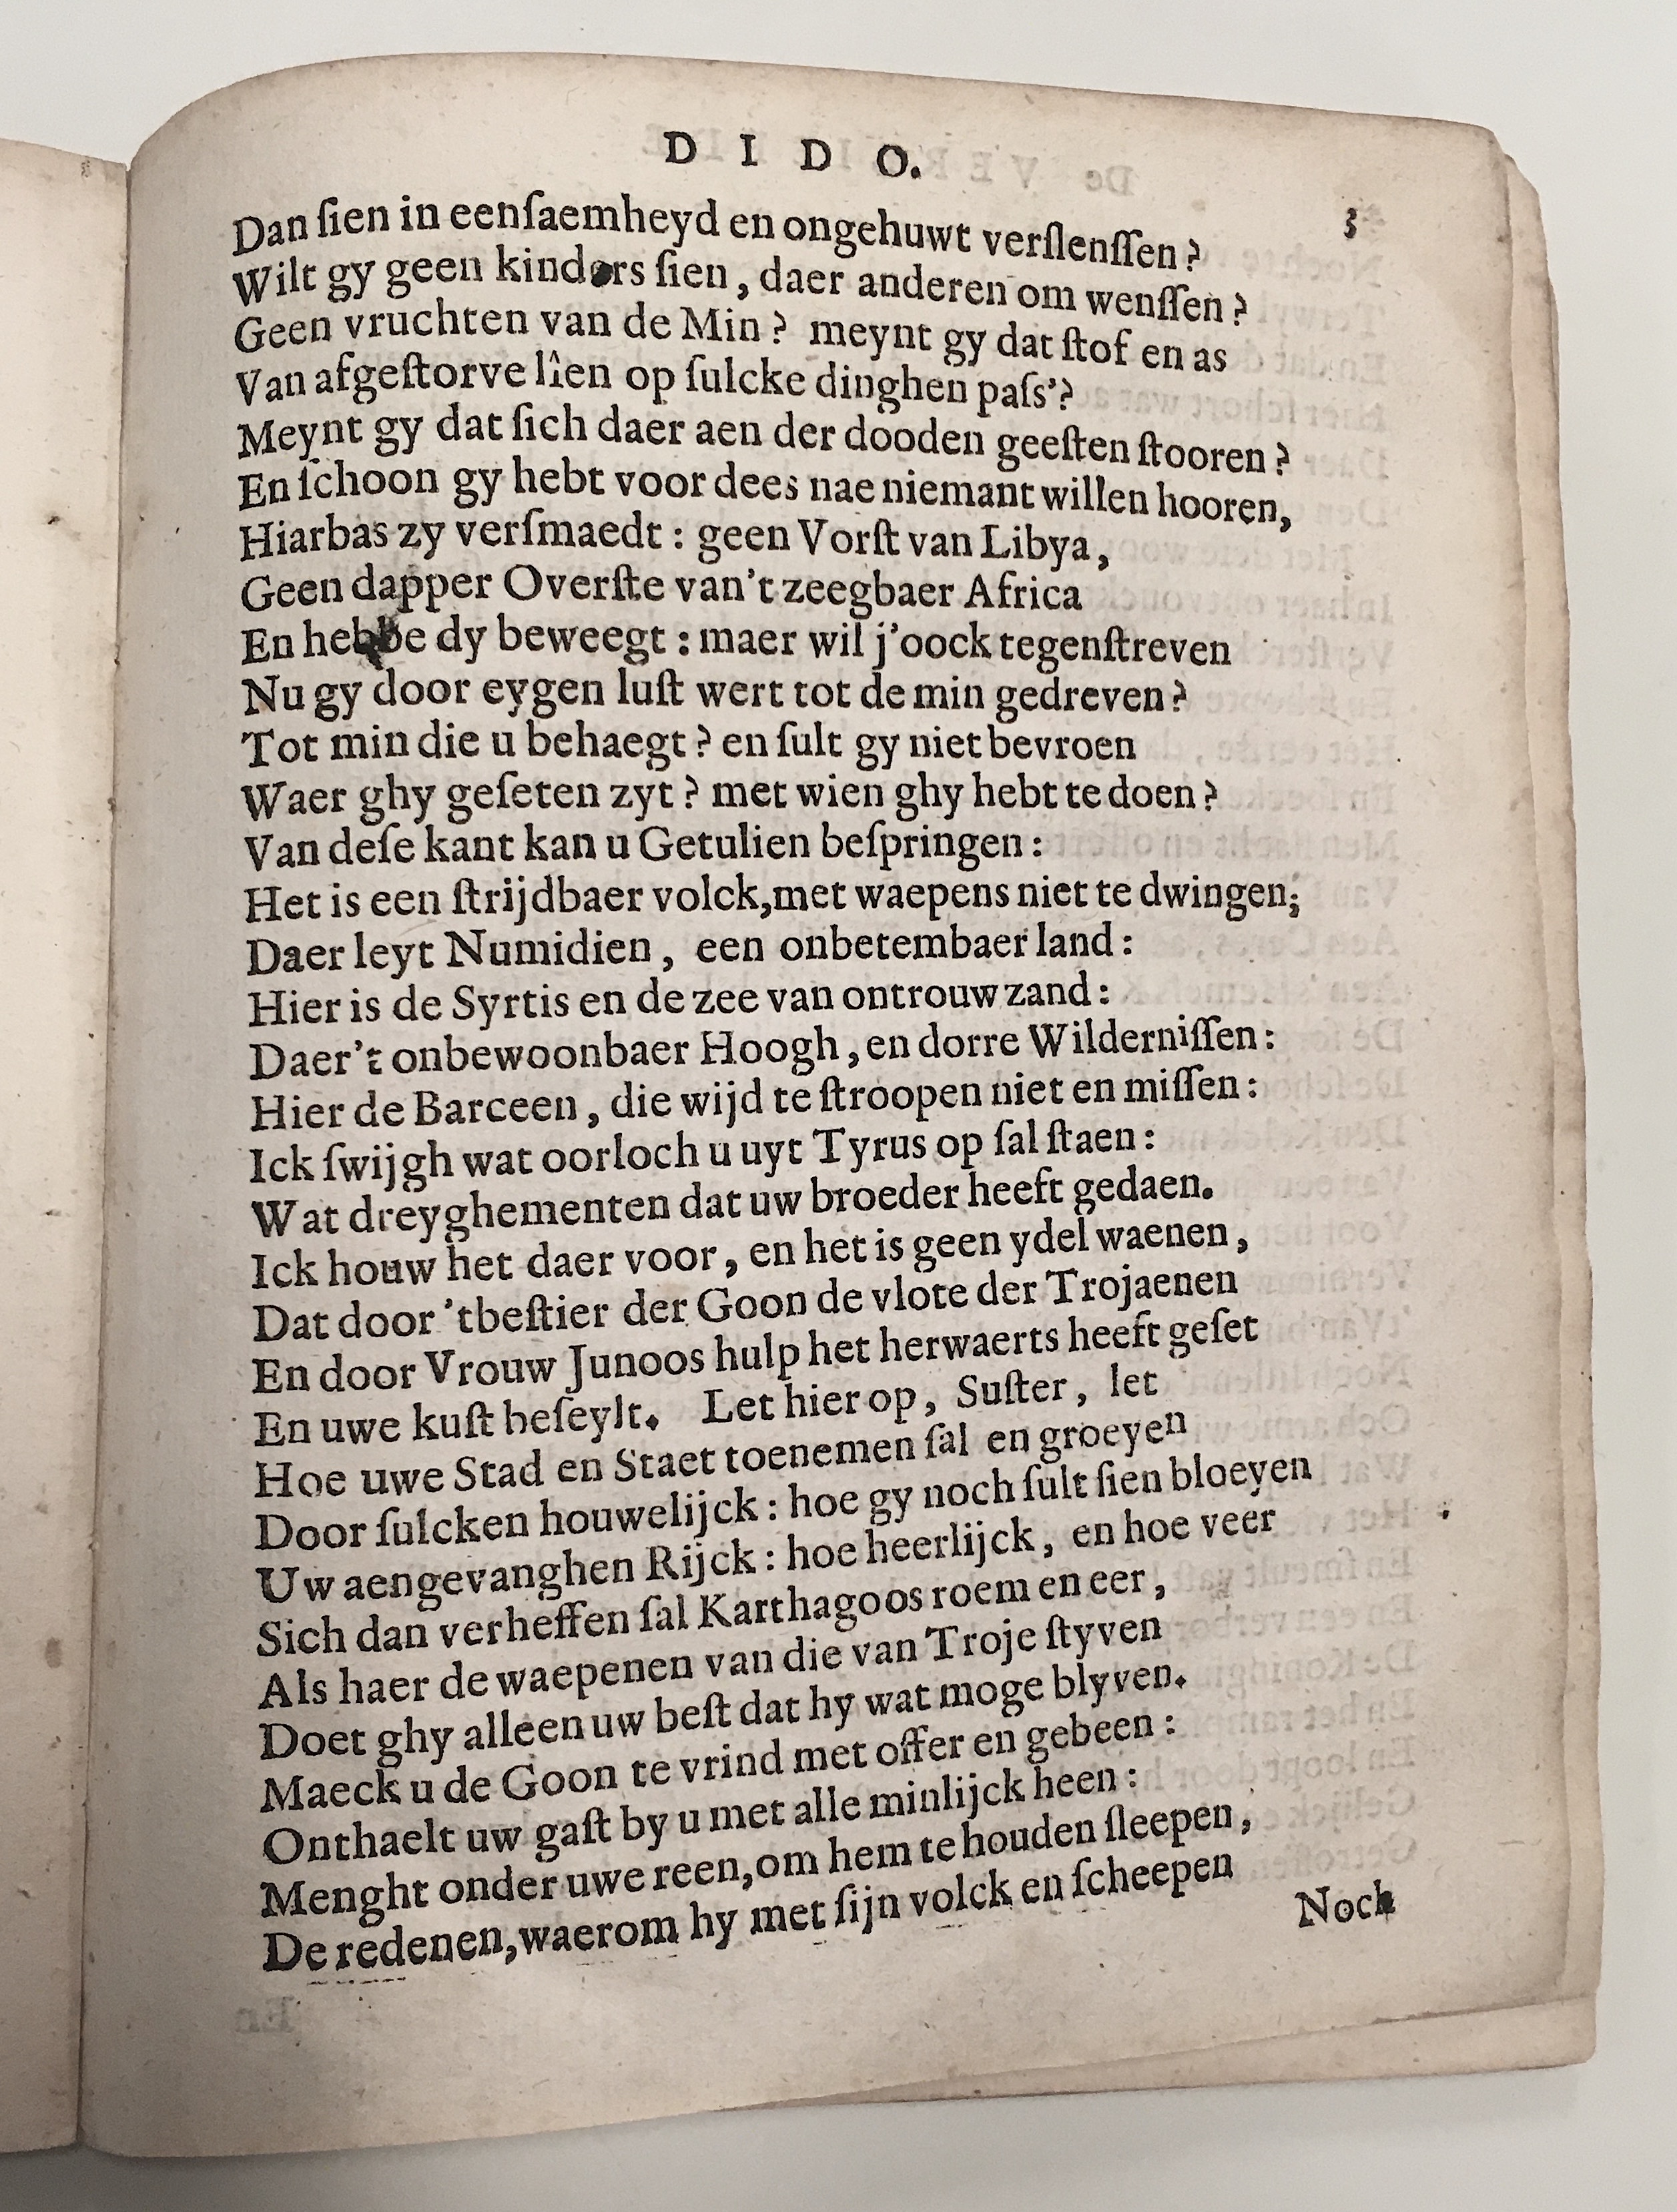 D I D O.
3
Dan ſien in eenſaemheyd en ongehuwt verſlenſſen?
Wilt gy geen kinders ſien, daer anderen om wenſſen?
Geen vruchten van de Min? meynt gy dat ſtof en as
Van afgeſtorve lîen op ſulcke dinghen paſs'?
Meynt gy dat ſich daer aen der dooden geeſten ſtooren?
En ſchoon gy hebt voor dees nae niemant willen hooren,
Hiarbas zy verſmaedt: geen Vorſt van Libya,
Geen dapper Overſte van't zeegbaer Africa
En hebbe dy beweegt: maer wil j'oock tegenſtreven
Nu gy door eygen luſt wert tot de min gedreven?
Tot min die u behaegt? en ſult gy niet bevroen
Waer ghy geſeten zyt? met wien ghy hebt te doen?
Van deſe kant kan u Getulien beſpringen:
Het is een ſtrijdbaer volck, met waepens niet te dwingen;
Daer leyt Numidien, een onbetembaer land:
Hier is de Syrtis en de zee van ontrouw zand:
Daer't onbewoonbaer Hoogh, en dorre Wilderniſſen:
Hier de Barceen, die wijd te ſtroopen niet en miſſen:
Ick ſwijgh wat oorloch u uyt Tyrus op ſal ſtaen:
Wat dreyghementen dat uw broeder heeft gedaen.
Ick houw het daer voor, en het is geen ydel waenen,
Dat door 'tbeſtier der Goon de vlote der Trojaenen
En door Vrouw Junoos hulp het herwaerts heeft geſet
En uwe kuſt beſeylt. Let hier op, Suſter, let
Hoe uwe Stad en Staet toenemen ſal en groeyen
Door ſulcken houwelijck: hoe gy noch ſult ſien bloeyen
Uw aengevanghen Rijck: hoe heerlijck, en hoe veer
Sich dan verheffen ſal Karthagoos roem en eer,
Als haer de waepenen van die van Troje ſtyven
Doet ghy alleen uw beſt dat hy wat moge blyven.
Maeck u de Goon te vrind met offer en gebeen:
Onthaelt uw gaſt by u met alle minlijck heen:
Menght onder uwe reen, om hem te houden ſleepen,
De redenen, waerom hy met ſijn volck en ſcheepen
Noch